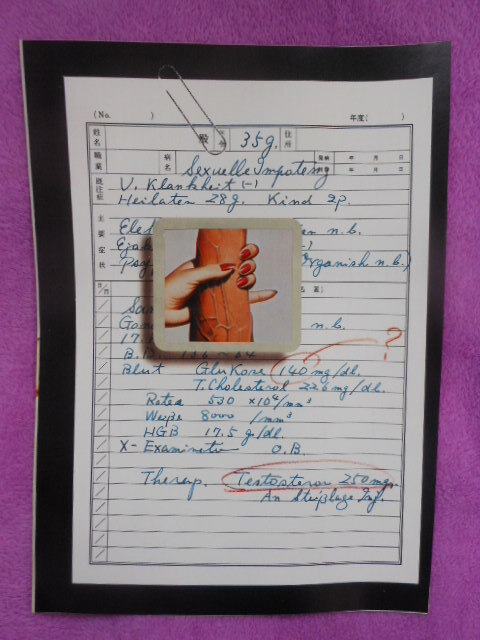 (No. )
年度( )
姓名 殿 35g. 住所
職業 病名 Sexuelle Impotenz 年 月 日
年 月 日
既往症 V. Klankheit (-)
Heilaten 28g. Kind 2P.
主要症状 n.b.
(-)
Organish n.b.)
日/月
n.b.
Blut Glukose 140 mg/dl. ?
T. Cholesterol 226mg/dl.
Rotea 530 ×10⁴/mm³
Weiβe 8000 /mm³
HGB 17.5 g/dl.
X- Examination O.B.
Therap. Testosteron 250mg.
An Steißlage Inj.